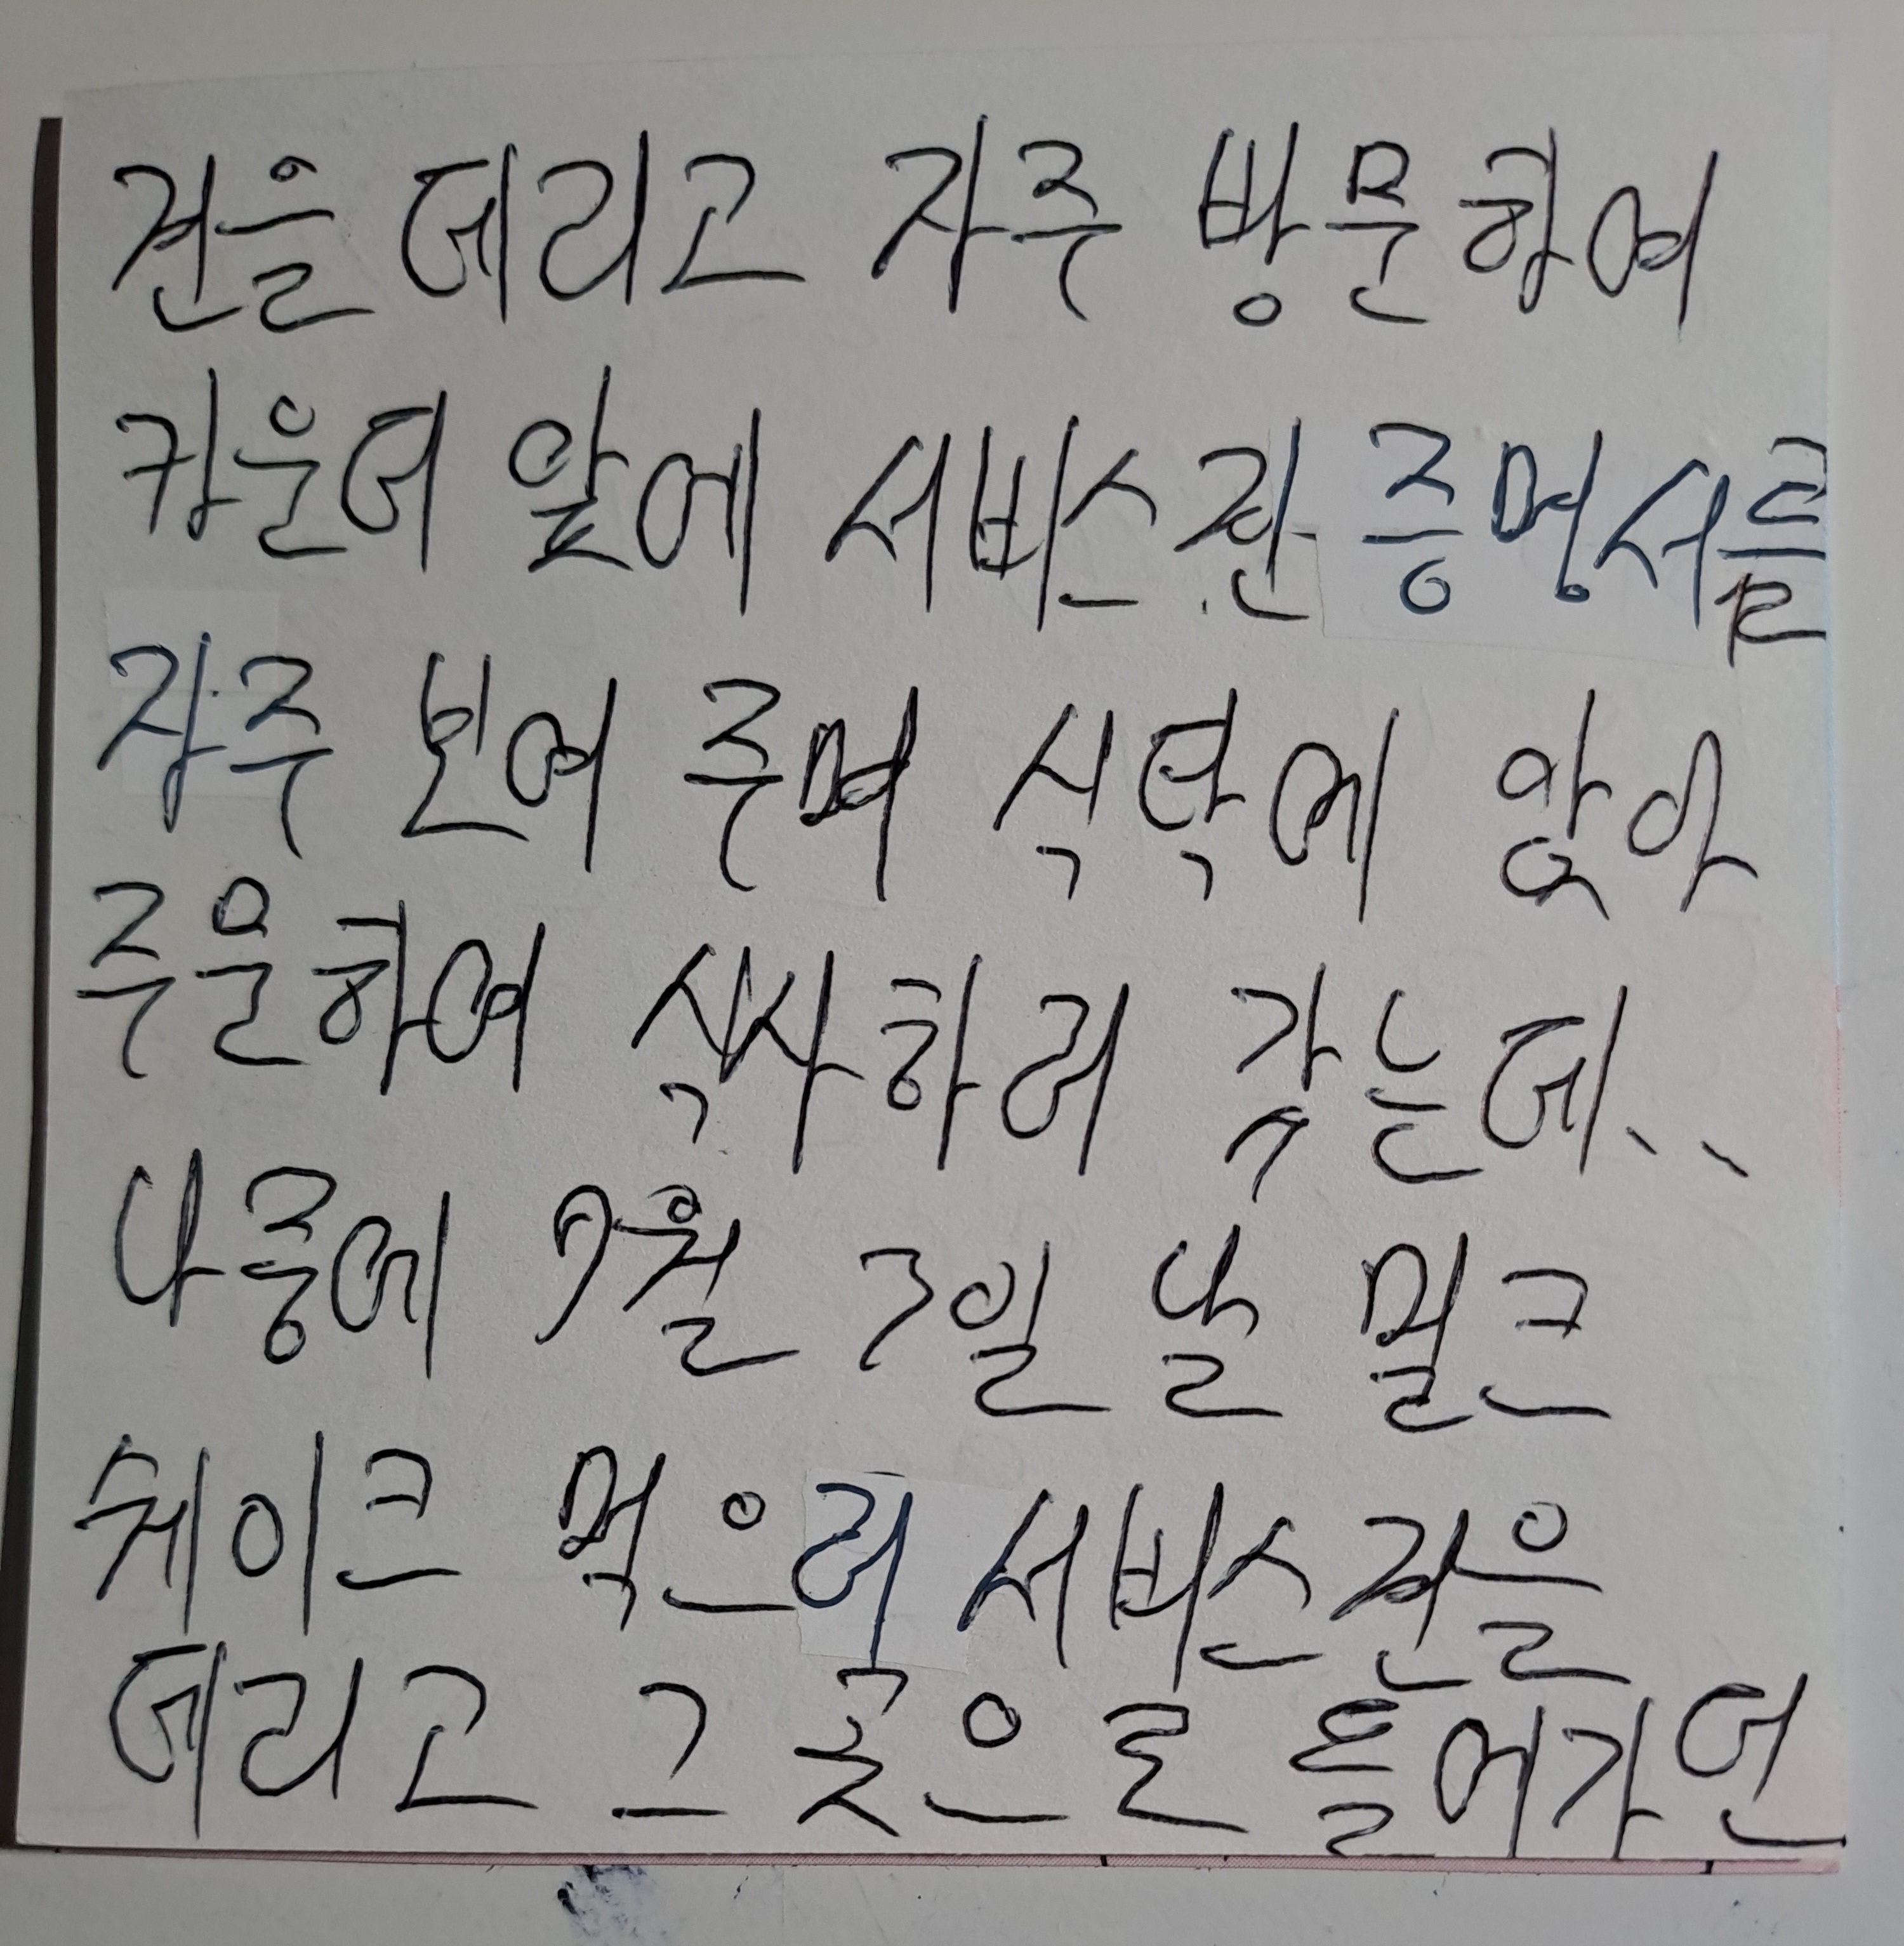 견을 데리고 자주 방문하여
카운터 앞에 서비스견 증명서를
자주 보여 주며 식탁에 앉아
주문하여 식사하러 갔는데..
나중에 7월 3일 날 밀크
케이크 먹으러 서비스견을
데리고 그 곳으로 들어가던